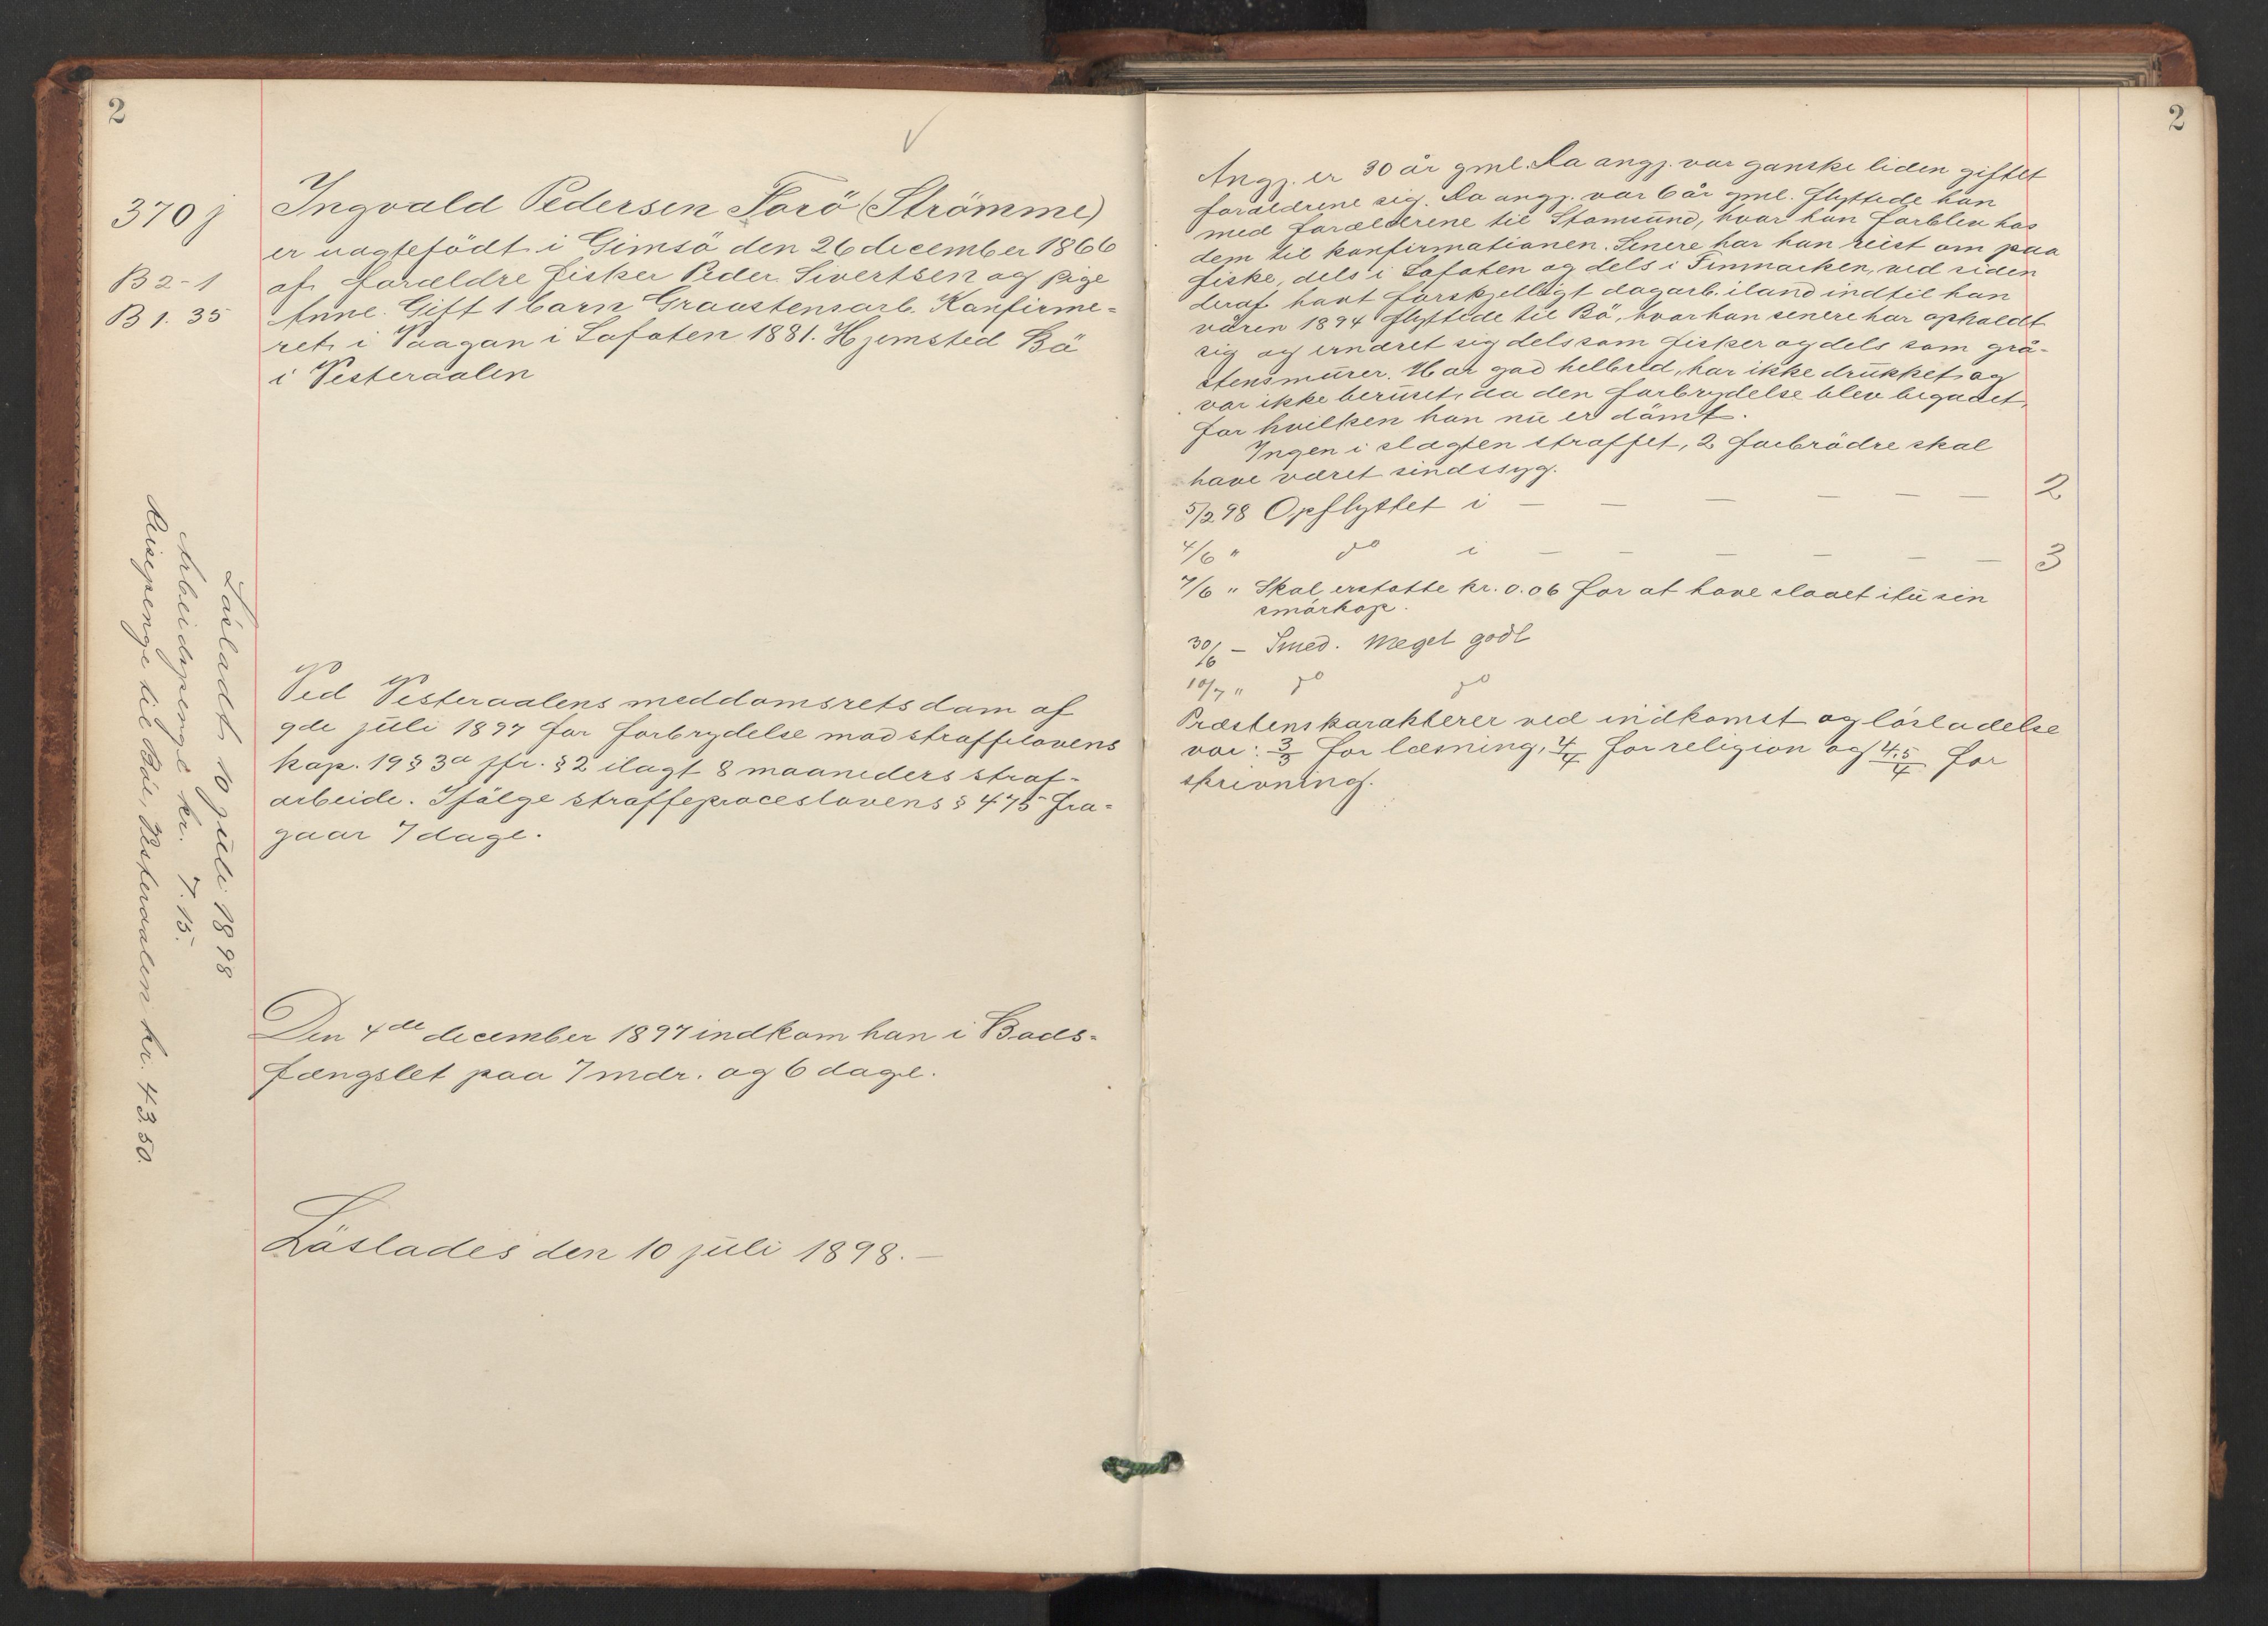 2
370 j
B 2-1
B 1. 35
Ingvald Pedersen Farö (Strömme)
er uægtefödt i Gimsö den 26 december 1866
af forældre fisker Peder Sivertsen og pige
Anne. Gift 1 barn Graastensarb. Konfirme-
ret i Vaagan i Lofoten 1881. Hjemsted Bö
i Vesteraalen
Lösladt 10 juli 1898
Arbeidspenge kr. 7.15.
Reisepenge til Bö i Vesteraalen kr. 43.50.
Ved Vesteraalens meddomsrets dom af
9de juli 1897 for forbrydelse mod straffelovens
kap. 19 § 3a jfr. § 2 ilagt 8 maaneders straf-
arbeide. Ifölge straffeproceslovens § 475 fra-
gaar 7 dage.
Den 4de december 1897 indkom han i Bods-
fængslet paa 7 mdr. og 6 dage.
Löslades den 10 juli 1898. —
2
Angj. er 30 år gml. Da angj. var ganske liden giftet
forældrene sig. Da angj. var 6 år gml. flyttede han
med forældrene til Stamsund, hvor han forblev hos
dem til konfirmationen. Senere har han reist om paa
fiske, dels i Lofoten og dels i Finmarken, ved siden
deraf havt forskjelligt dagarb. iland indtil han
våren 1894 flyttede til Bö, hvor han senere har opholdt
sig og ernæret sig dels som fisker og dels som grå-
stensmurer. Har god helbred, har ikke drukket og
var ikke beruset, da den forbrydelse blev begaaet,
for hvilken han nu er dömt.
Ingen i slægten straffet, 2 farbrödre skal
have været sindssyg.
5/2 98 Opflyttet i — — — — — — 2
4/6 " do i — — — — — — 3
7/6 " Skal erstatte kr. 0.06 for at have slaaet itu sin
smörkop.
30/6 — Smed. Meget godt
10/7 " do do
Prœstens karakterer ved indkomst og lösladelse
var: 3/3 for læsning, 4/4 for religion og 4.5/4 for
skrivning.